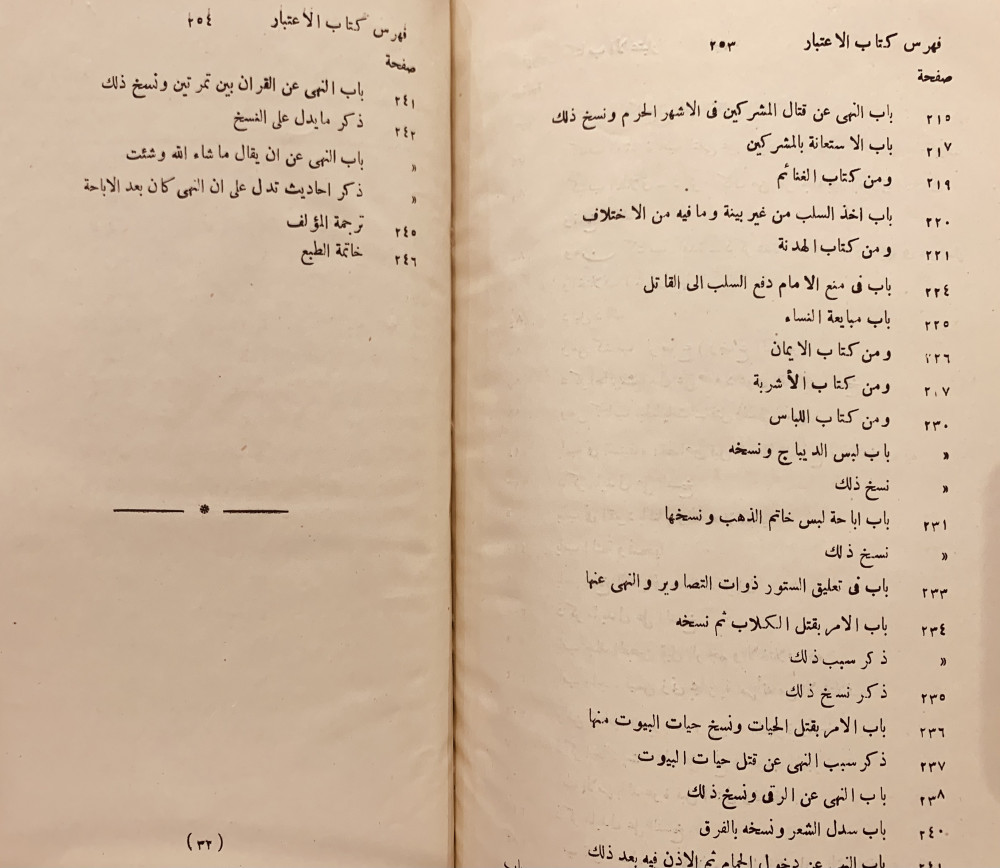 فهرس كتاب الاعتبار ٢٥٣
صفحة
٢١٥ باب النهى عن قتال المشركين فى الاشهر الحرم ونسخ ذلك
٢١٧ باب الاستعانة بالمشركين
٢١٩ ومن كتاب الغنائم
٢٢٠ باب اخذ السلب من غير بينة وما فيه من الاختلاف
٢٢١ ومن كتاب الهدنة
٢٢٤ باب فى منع الامام دفع السلب الى القاتل
٢٢٥ باب مبايعة النساء
٢٢٦ ومن كتاب الايمان
٢٠٧ ومن كتاب الأشربة
٢٣٠ ومن كتاب اللباس
» باب لبس الديباج ونسخه
» نسخ ذلك
٢٣١ باب اباحة لبس خاتم الذهب ونسخها
» نسخ ذلك
٢٣٣ باب فى تعليق الستور ذوات التصاوير والنهى عنها
٢٣٤ باب الامر بقتل الكلاب ثم نسخه
» ذكر سبب ذلك
٢٣٥ ذكر نسخ ذلك
٢٣٦ باب الامر بقتل الحيات ونسخ حيات البيوت منها
٢٣٧ ذكر سبب النهى عن قتل حيات البيوت
٢٣٨ باب النهى عن الرقى ونسخ ذلك
٢٤٠ باب سدل الشعر ونسخه بالفرق
٢٤١ باب النهى عن دخول الحمام ثم الاذن فيه بعد ذلك
باب
فهرس كتاب الاعتبار ٢٥٤
صفحة
٢٤١ باب النهى عن القران بين تمرتين ونسخ ذلك
٢٤٢ ذكر مايدل على النسخ
» باب النهى عن ان يقال ما شاء الله وشئت
» ذكر احاديث تدل على ان النهى كان بعد الاباحة
٢٤٥ ترجمة المؤلف
٢٤٦ خاتمة الطبع
(٣٢)